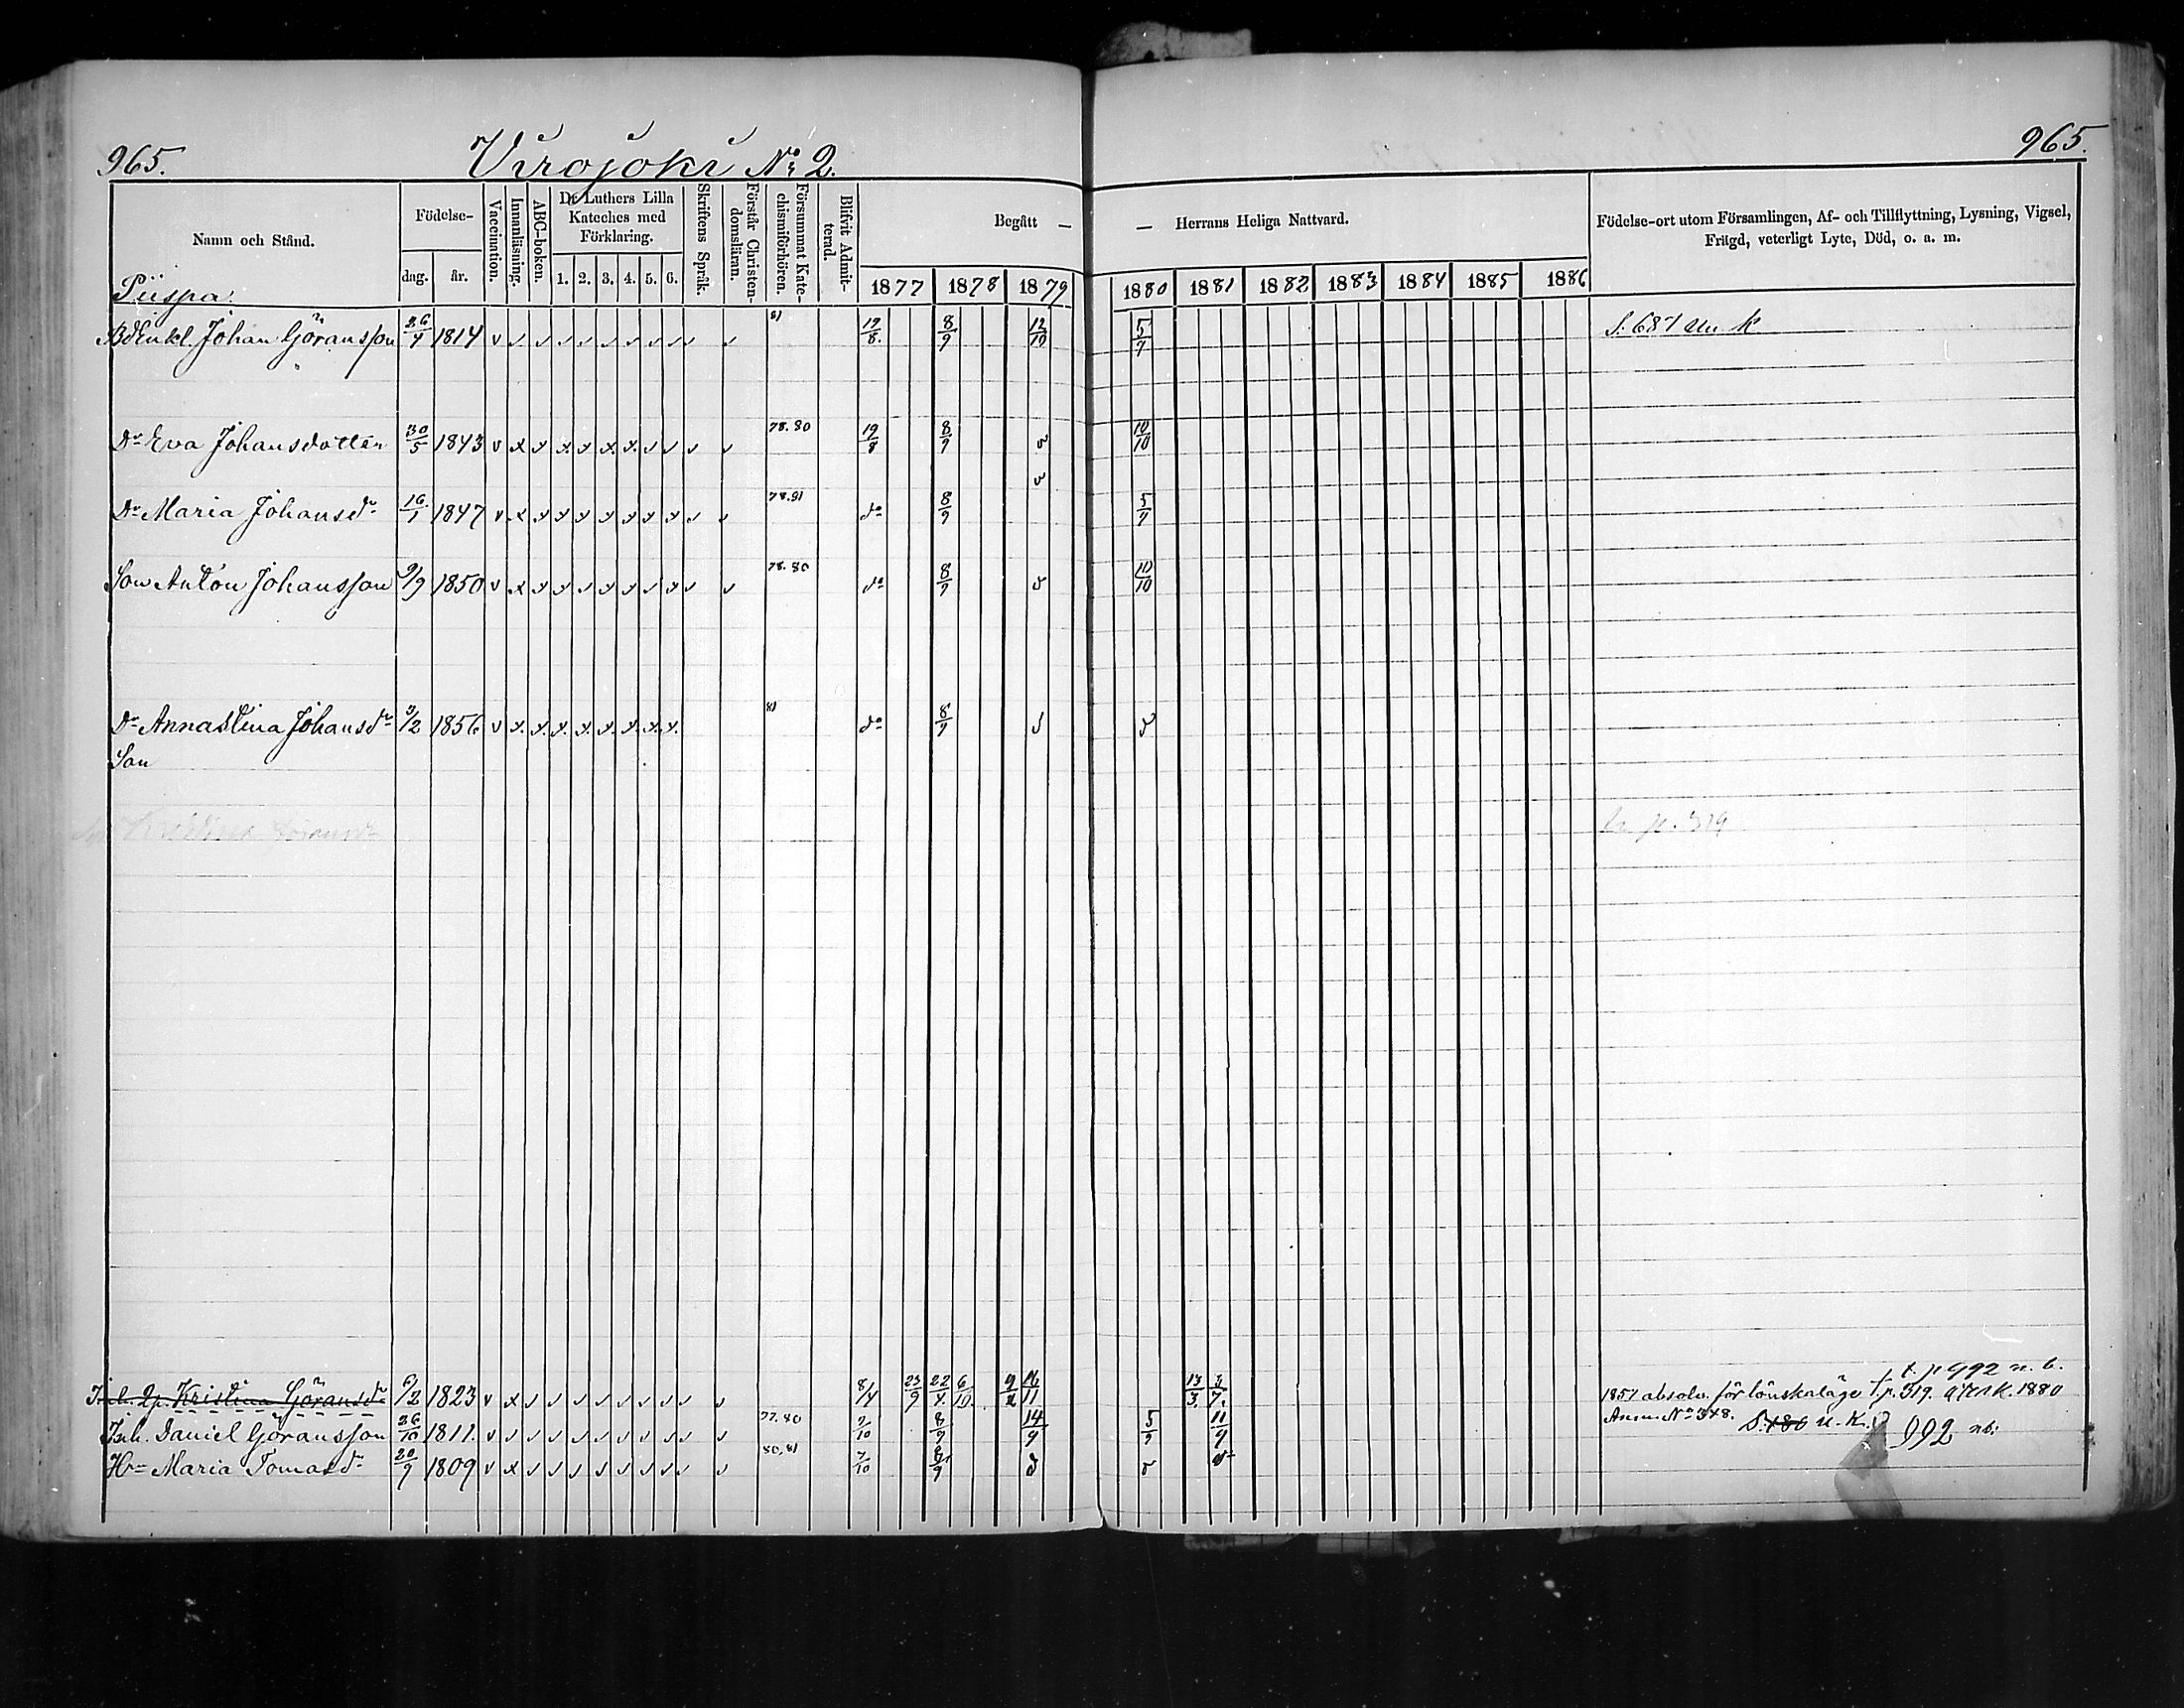 965.
Virojoki No 2.
965.
Namn och Stånd.
Födelse-
dag.
år.
Vaccination.
Innanläsning.
ABC-boken.
Dr Luthers Lilla
Kateches med
Förklaring.
1. 2. 3. 4. 5. 6.
Skriftens Språk.
Förstår Christen-
domsläran.
Försummat Kate-
chismiförhören.
Blifvit Admit-
terad.
Begått — — Herrans Heliga Nattvard.
1877 1878 1879 1880 1881 1882 1883 1884 1885 1886
Födelse-ort utom Församlingen, Af- och Tillflyttning, Lysning, Vigsel,
Frägd, veterligt Lyte, Död, o. a. m.
Piispa:
BdEnkl. Johan Göransson 26/4 1814 v 81 19/8. 8/9 12/10 5/9 S. 687 k
Dr Eva Johansdotter 30/5 1843 v x 78.80 19/8 8/9 v 10/10
v
Dr Maria Johansdr 16/1 1847 v x 78.81 do 8/9 5/9
Son Anton Johansson 9/9 1850 v x 78.80 do 8/9 v 10/10
Dr Annastina Johansdr 3/2 1856 v x 81 do 8/9
Son
p. 319
t. p 992 n. b.
Inh. Qp. Kristina Göransdr 6/2 1823 v x 8/4 23/9 22/4. 6/10. 9/2 16/11 13/3. 3/7. 1857 absolv. för lönskaläge f. p. 319. 1880
Anm. No 348.
Inh. Daniel Göransson 26/10 1811. v 77.80 7/10 8/9 14/9 5/9 11/9 S. 480 u. K. 992 nb:
Hu Maria Tomasdr 20/9 1809 v x 80.81 7/10 8/9 v v